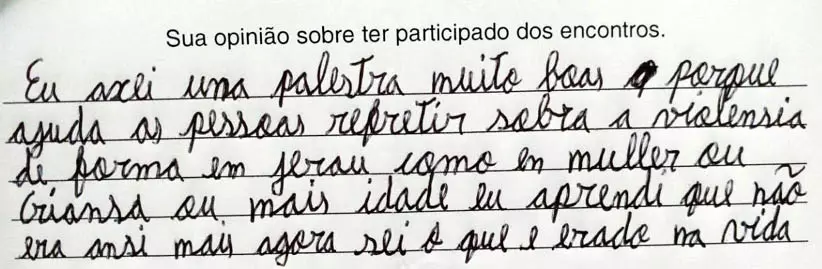 Sua opinião sobre ter participado dos encontros.
Eu axei uma palestra muito boas porque
ajuda as pessoas refretir sobra a violensia
de forma em jerau como en muller ou
Criansa ou mais idade eu aprendi que não
era ansi mais agora sei o que e erado na vida